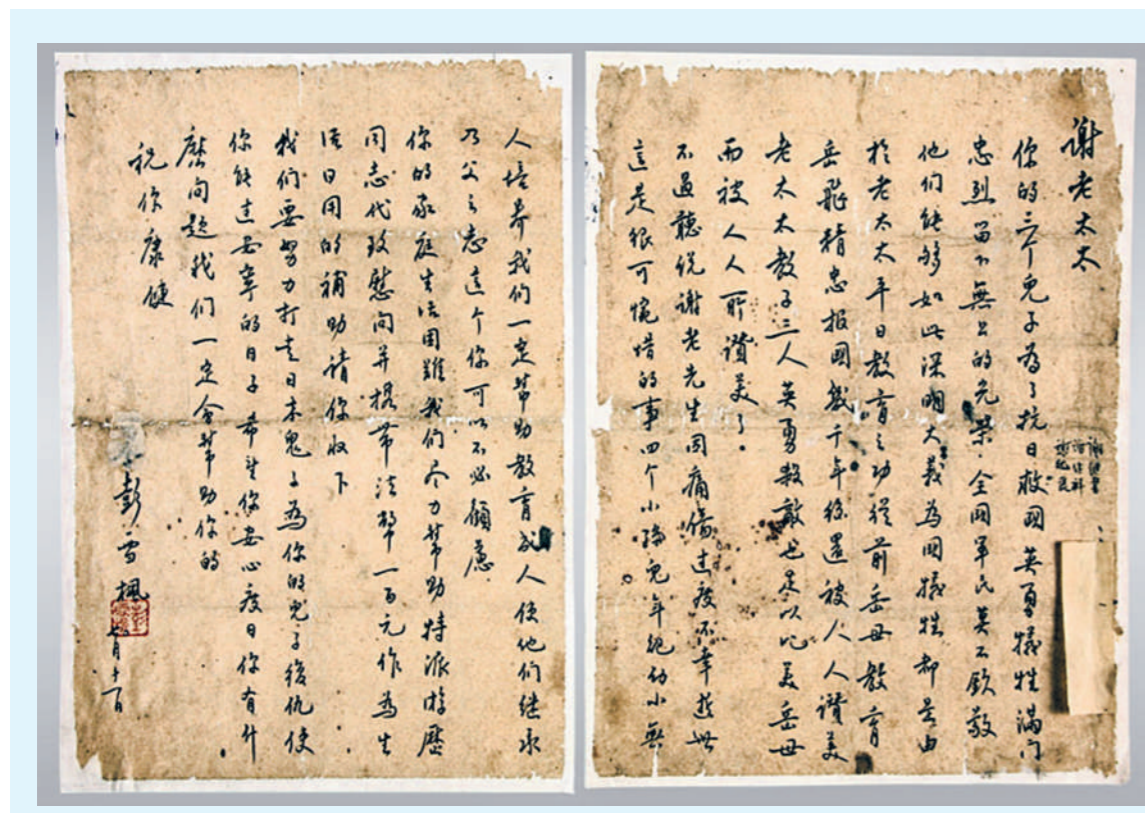 謝老太太
你的三个兒子為了抗日救國英勇犧牲满门
忠烈留下無上的光榮全國軍民莫不欽敬
他们能够如此深明大義為国犧牲都是由
於老太太平日教育之功從前岳母教育
岳飛精忠报國幾千年後還被人人讚美
老太太教子三人英勇殺敵也足以比美岳母
而被人人所讚美了。
不過聽说謝老先生因痛傷过度不幸逝世
這是很可惋惜的事四个小孫兒年纪幼小無
人培养我们一定帮助教育成人使他们继承
乃父之志這个你可以不必顧慮
你的家庭生活困難我们尽力帮助特派游歷
同志代致慰问并携带法幣一百元作為生
活日用的補助請你收下
我们要努力打走日本鬼子為你的兒子復仇使
你能过安寧的日子希望你安心度日你有什
麽问题我们一定会帮助你的
祝你康健
彭雪楓
七月十一日